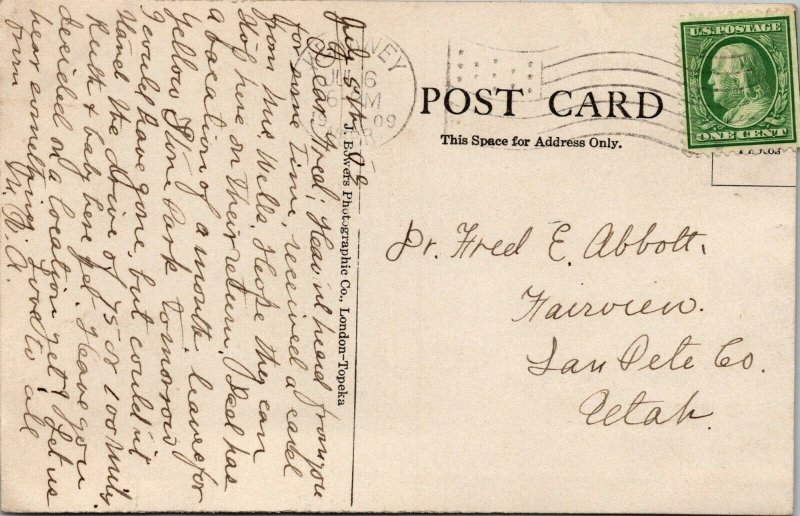 July 5th, 09
Dear Fred; Haven't heard from you
for some time, received a card
from Mrs. Wells. Hope they can
stop here on their return. Dad has
a vacation of a month, leaves for
Yellow Stone Park tomorrow
I could have gone, but couldn't
stand the drive of 75 or 100 miles
Ruth & baby here yet. Have you
decided on a location yet? Let us
hear something. Love to all
from M. B. A.
J. Bowers Photographic Co., London-Topeka
NEY
JUL 6
M
09
POST CARD
This Space for Address Only.
U.S. POSTAGE
ONE CENT
Dr. Fred E. Abbott,
Fairview.
San Pete Co.
Utah.